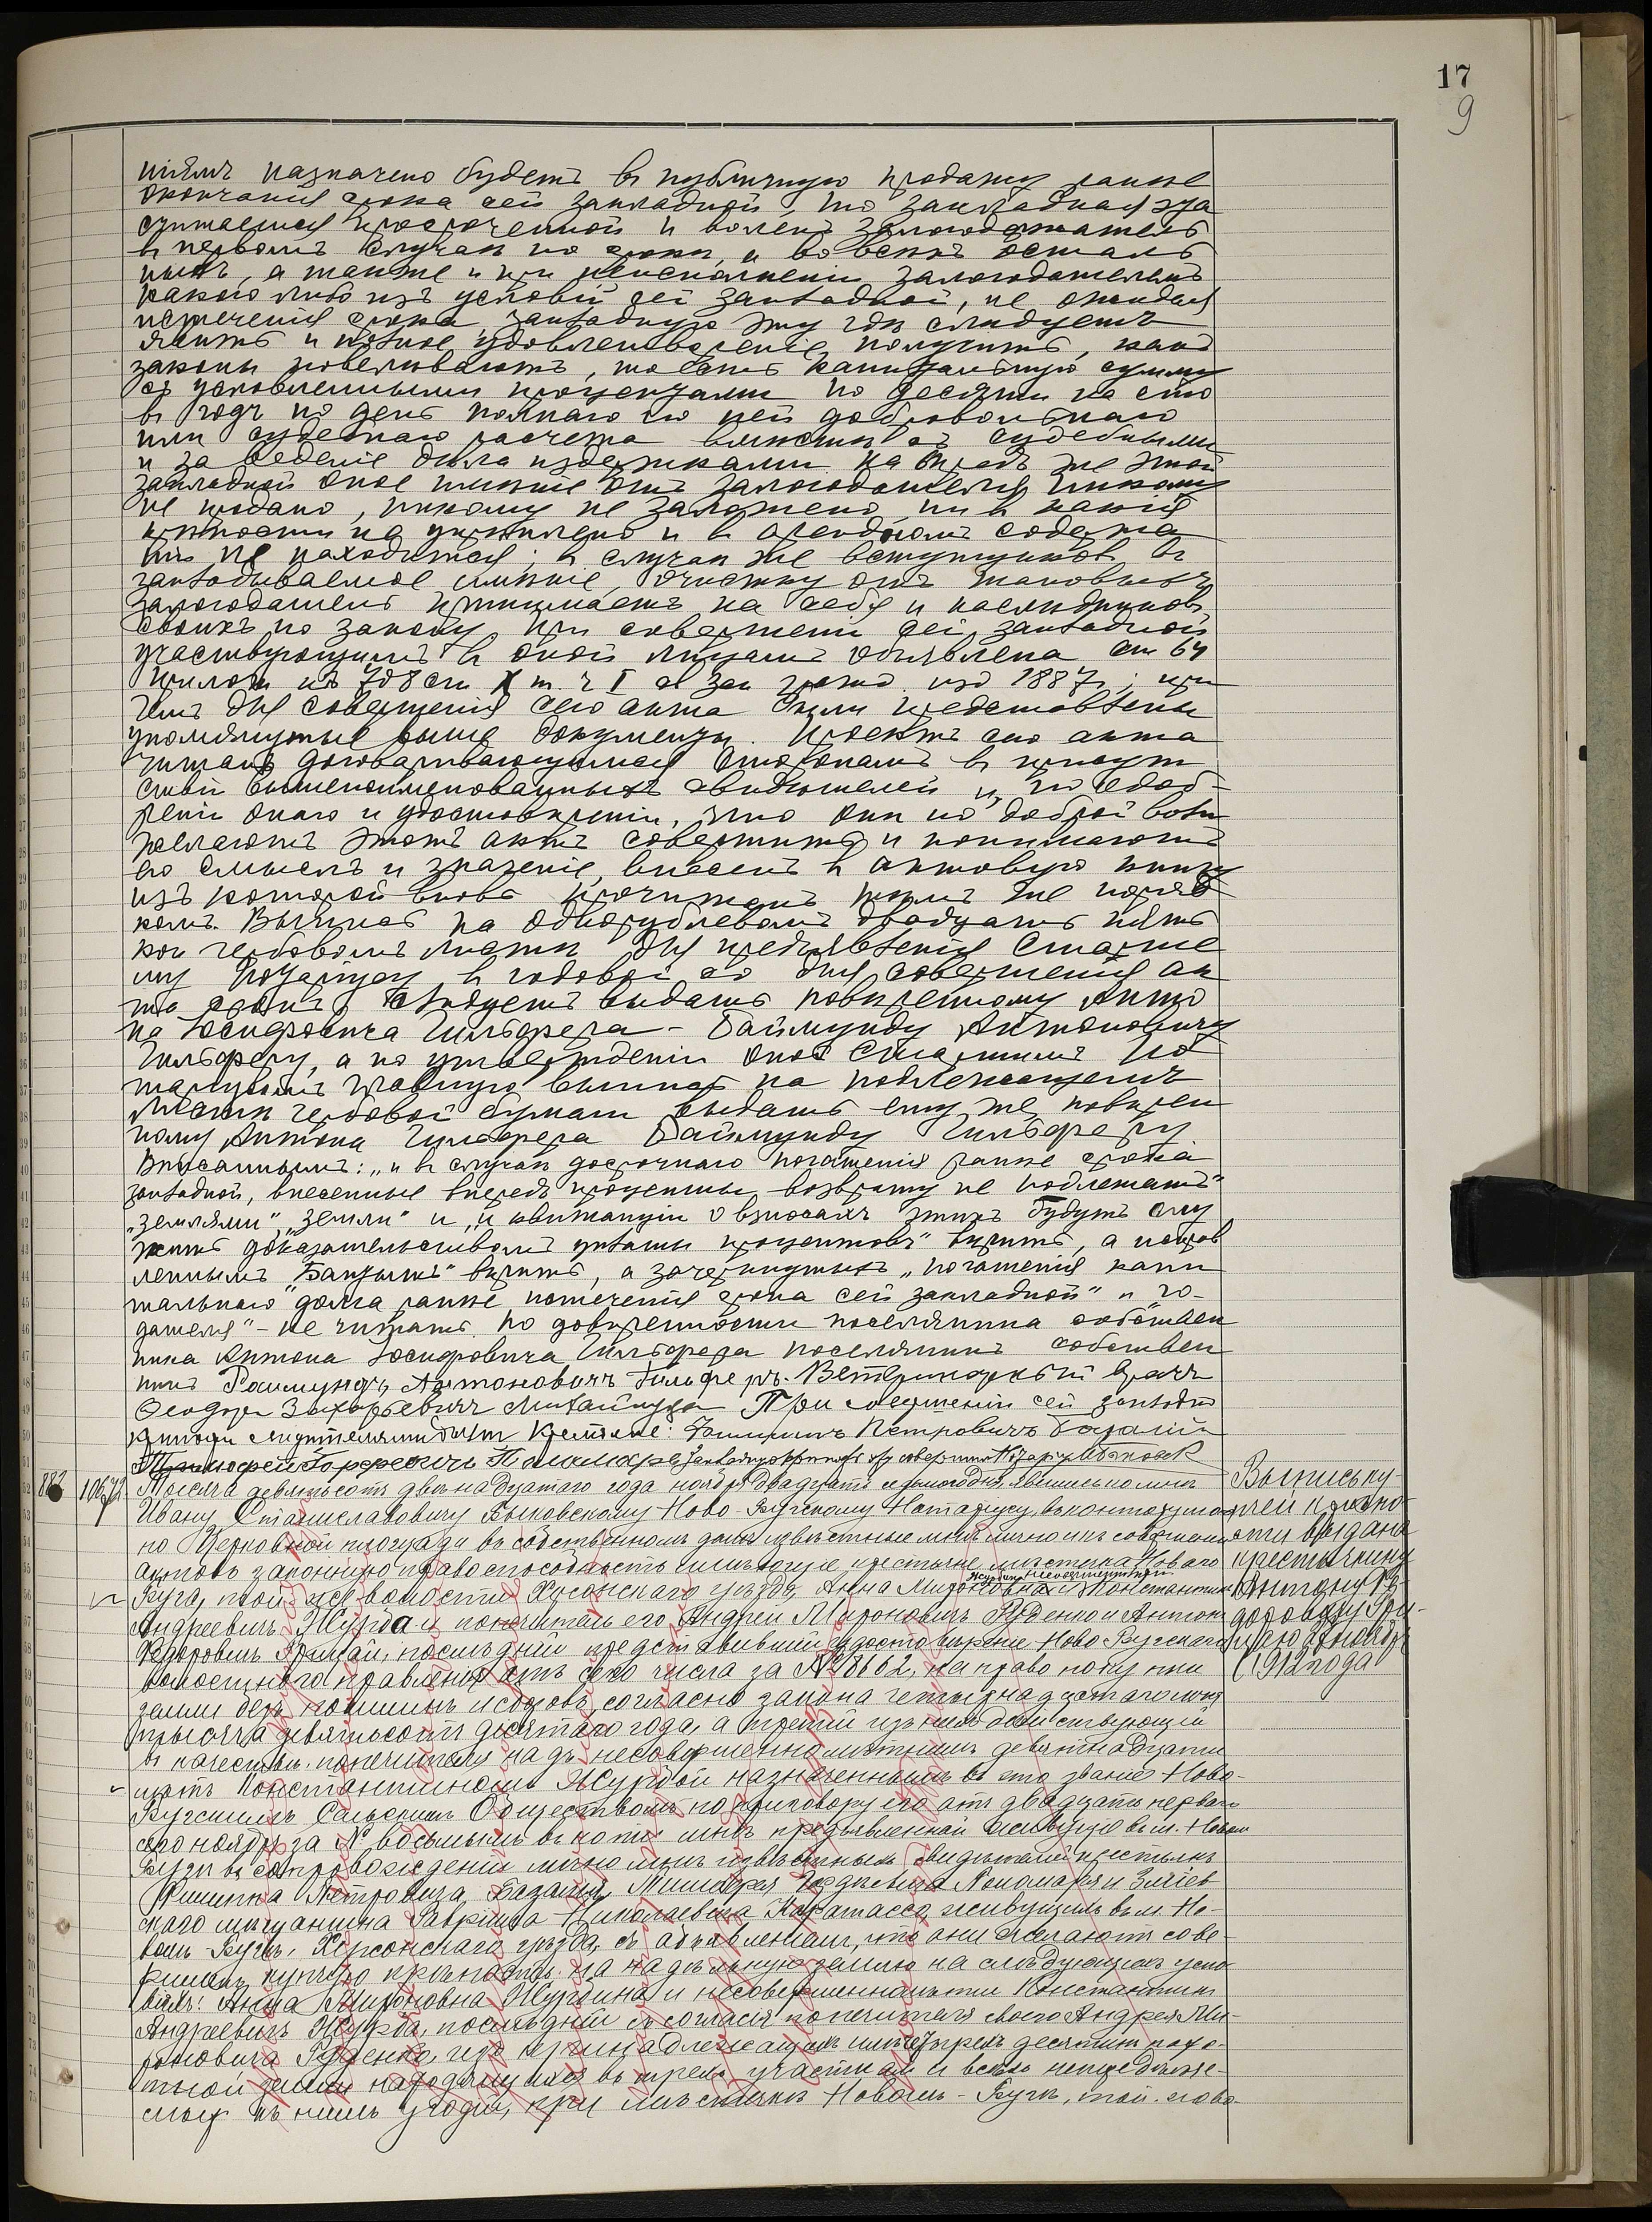 17
9
нiемъ назначено будетъ въ публичную продажу ранее
окончанiя срока сей закладной, то закладная эта
считается просроченной и воленъ залогодержатель
въ первомъ случаѣ по срокѣ, и во всехъ осталь
ныхъ, а также и при неисполненiи залогодателемъ
какого либо изъ условiй сей закладной, не ожидая
истеченiя срока, закладную эту где следуетъ
явить и полное удовлетворенiе получить, какъ
законы повелеваютъ, то есть капитальную сумму
съ условленными процентами по десяти на сто
въ годъ по день полнаго по ней добровольнаго
или судебнаго расчета вместе съ судебными
и за веденiе дела издержками. На предъ же этой
закладной оное именiе отъ залогодателя никому
не продано, никому не заложено, ни въ какiя
крепости не укреплено и въ арендномъ содержа
нiи не находится; въ случае же вступщиковъ въ
закладываемое именiе, очистку отъ таковыхъ
залогодатель принимаетъ на себя и наследниковъ
своихъ по закону. При совершенiи сей закладной
участвующимъ въ оной лицамъ объявлена ст 64
прилож къ 708 ст X т. ч I св зак гражд. изд 1887 г; при
чемъ для совершенiя сего акта были представлены
упомянутые выше документы. Проектъ сего акта
читанъ договаривающимся сторонамъ въ присут
ствiи вышепоименованныхъ свидетелей и, по одоб-
ренiи онаго и удостоверенiи, что они по доброй воли
желаютъ этотъ актъ совершить и понимаютъ
его смыслъ и значенiе, внесенъ въ актовую книгу
изъ которой вновь прочитанъ темъ же поряд
комъ. Выпись на однорублевомъ двадцать пять
коп гербовомъ листе для предъявленiя Старше
му Нотарiусу въ годовой со дня совершенiя ак
та срокъ, следуетъ выдать поверенному Анто
на Iосифовича Гильдфера - Раймунду Антоновичу
Гильдферу, а по утвержденiи оной Старшимъ Но
тарiусомъ главную выпись на подлежащемъ
листе гербовой бумаги выдать ему же, поверен
ному Антона Гильдфера Раймунду Гильдферу.
Вписаннымъ: „и въ случае досрочнаго погашенiя ранее срока
закладной, внесенные впередъ проценты возврату не подлежатъ"
„землями" „земли" и „и квитанцiи о взносахъ этихъ будутъ слу
жить доказательствомъ уплаты процентовъ" верить, а исправ
леннымъ „Банкомъ" верить, а зачеркнутыхъ „погашенiя капи
тальнаго долга ранее истеченiя срока сей закладной" и „го-
дателя" - не читать. По доверенности поселянина собствен
ника Антона Iосифовича Гильдфера поселянинъ собствен
никъ Раимундъ Антоновичъ Гильферъ. Ветеринарный врачъ
Ѳеодоръ Захарьевичъ При совершенiи сей закладной
свидетелями были Крестьяне: Филиппъ Петровичъ Базалiй
883 10672
Тысяча девятьсотъ двенадцатаго года ноября двадцать седьмого дня, явились ко мне
Ивану Станиславовичу Быковскому Ново-Бугскому Нотарiусу, въ контору мою
по Церковной площади въ собственномъ доме известные мне лично и къ совершенiю
актовъ законную правоспособность имеющiе крестьяне местечка Новаго
Буга, той же волости Херсонскаго уезда, Анна Мироновна и Константинъ
Андреевичъ Журба и попечитель его Андрей Мироновичъ Руденко и Антонъ
Федоровичъ Грицай, последнiй представившiй удостоверенiе Ново Бугскаго
волостного правленiя отъ сего числа за № 8662, на право покупки
земли безъ пошлинъ и сборовъ, согласно закона четырнадцатаго iюня
тысяча девятьсотъ десятаго года, а третiй изъ нихъ действующiй
въ качестве попечителя надъ несовершеннолетнимъ девятнадцати
летъ Константиномъ Журбой назначеннымъ въ это званiе Ново-
Бугскимъ Сельскимъ Обществомъ по приговору его отъ двадцать перваго
сего ноября за № восьмымъ въ копiи мне предъявленной живущiе въ м. Новомъ
Буге въ сопровожденiи лично мне известныхъ свидетелей крестьянъ
Филиппа Петровича Базалiя, Тимофея Пономаря и Змiев
скаго мещанина Гаврiила Николаевича Карамассо, живущихъ въ м. Но-
вомъ Буге, Херсонскаго уезда, съ объявленiемъ, что они желаютъ сове-
ршить купчую крепость на надельную землю на следующихъ усло-
вiяхъ: Анна Мироновна Журбина и несовершеннолетнiй Константинъ
Андреевичъ Журба, последнiй съ согласiя попечителя своего Андрея Ми-
роновича Руденко, изъ принадлежащихъ имъ десятинъ пахо-
тной земли находящихся въ трехъ участкахъ и всехъ
къ нимъ угодiй, при местечке Новомъ-Буге, той-же во-
Выпись ку-
пчей крепо-
сти выдана
крестьянину
Антону Фе-
дорову Гри-
цаю ноября
1912 года